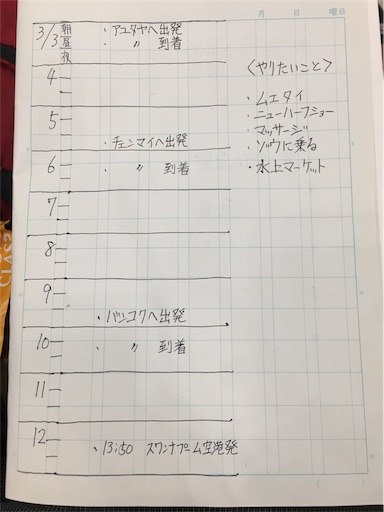 月 日 曜日
3/3 朝 ・アユタヤへ出発
昼 ・ 〃 到着
夜
4
5
・チェンマイへ出発
6 ・ 〃 到着
7
8
9
・バンコクへ出発
10 ・ 〃 到着
11
12
・13:50 スワンナプーム空港発
<やりたいこと>
・ムエタイ
・ニューハーフショー
・マッサージ
・ゾウに乗る
・水上マーケット
CLASS